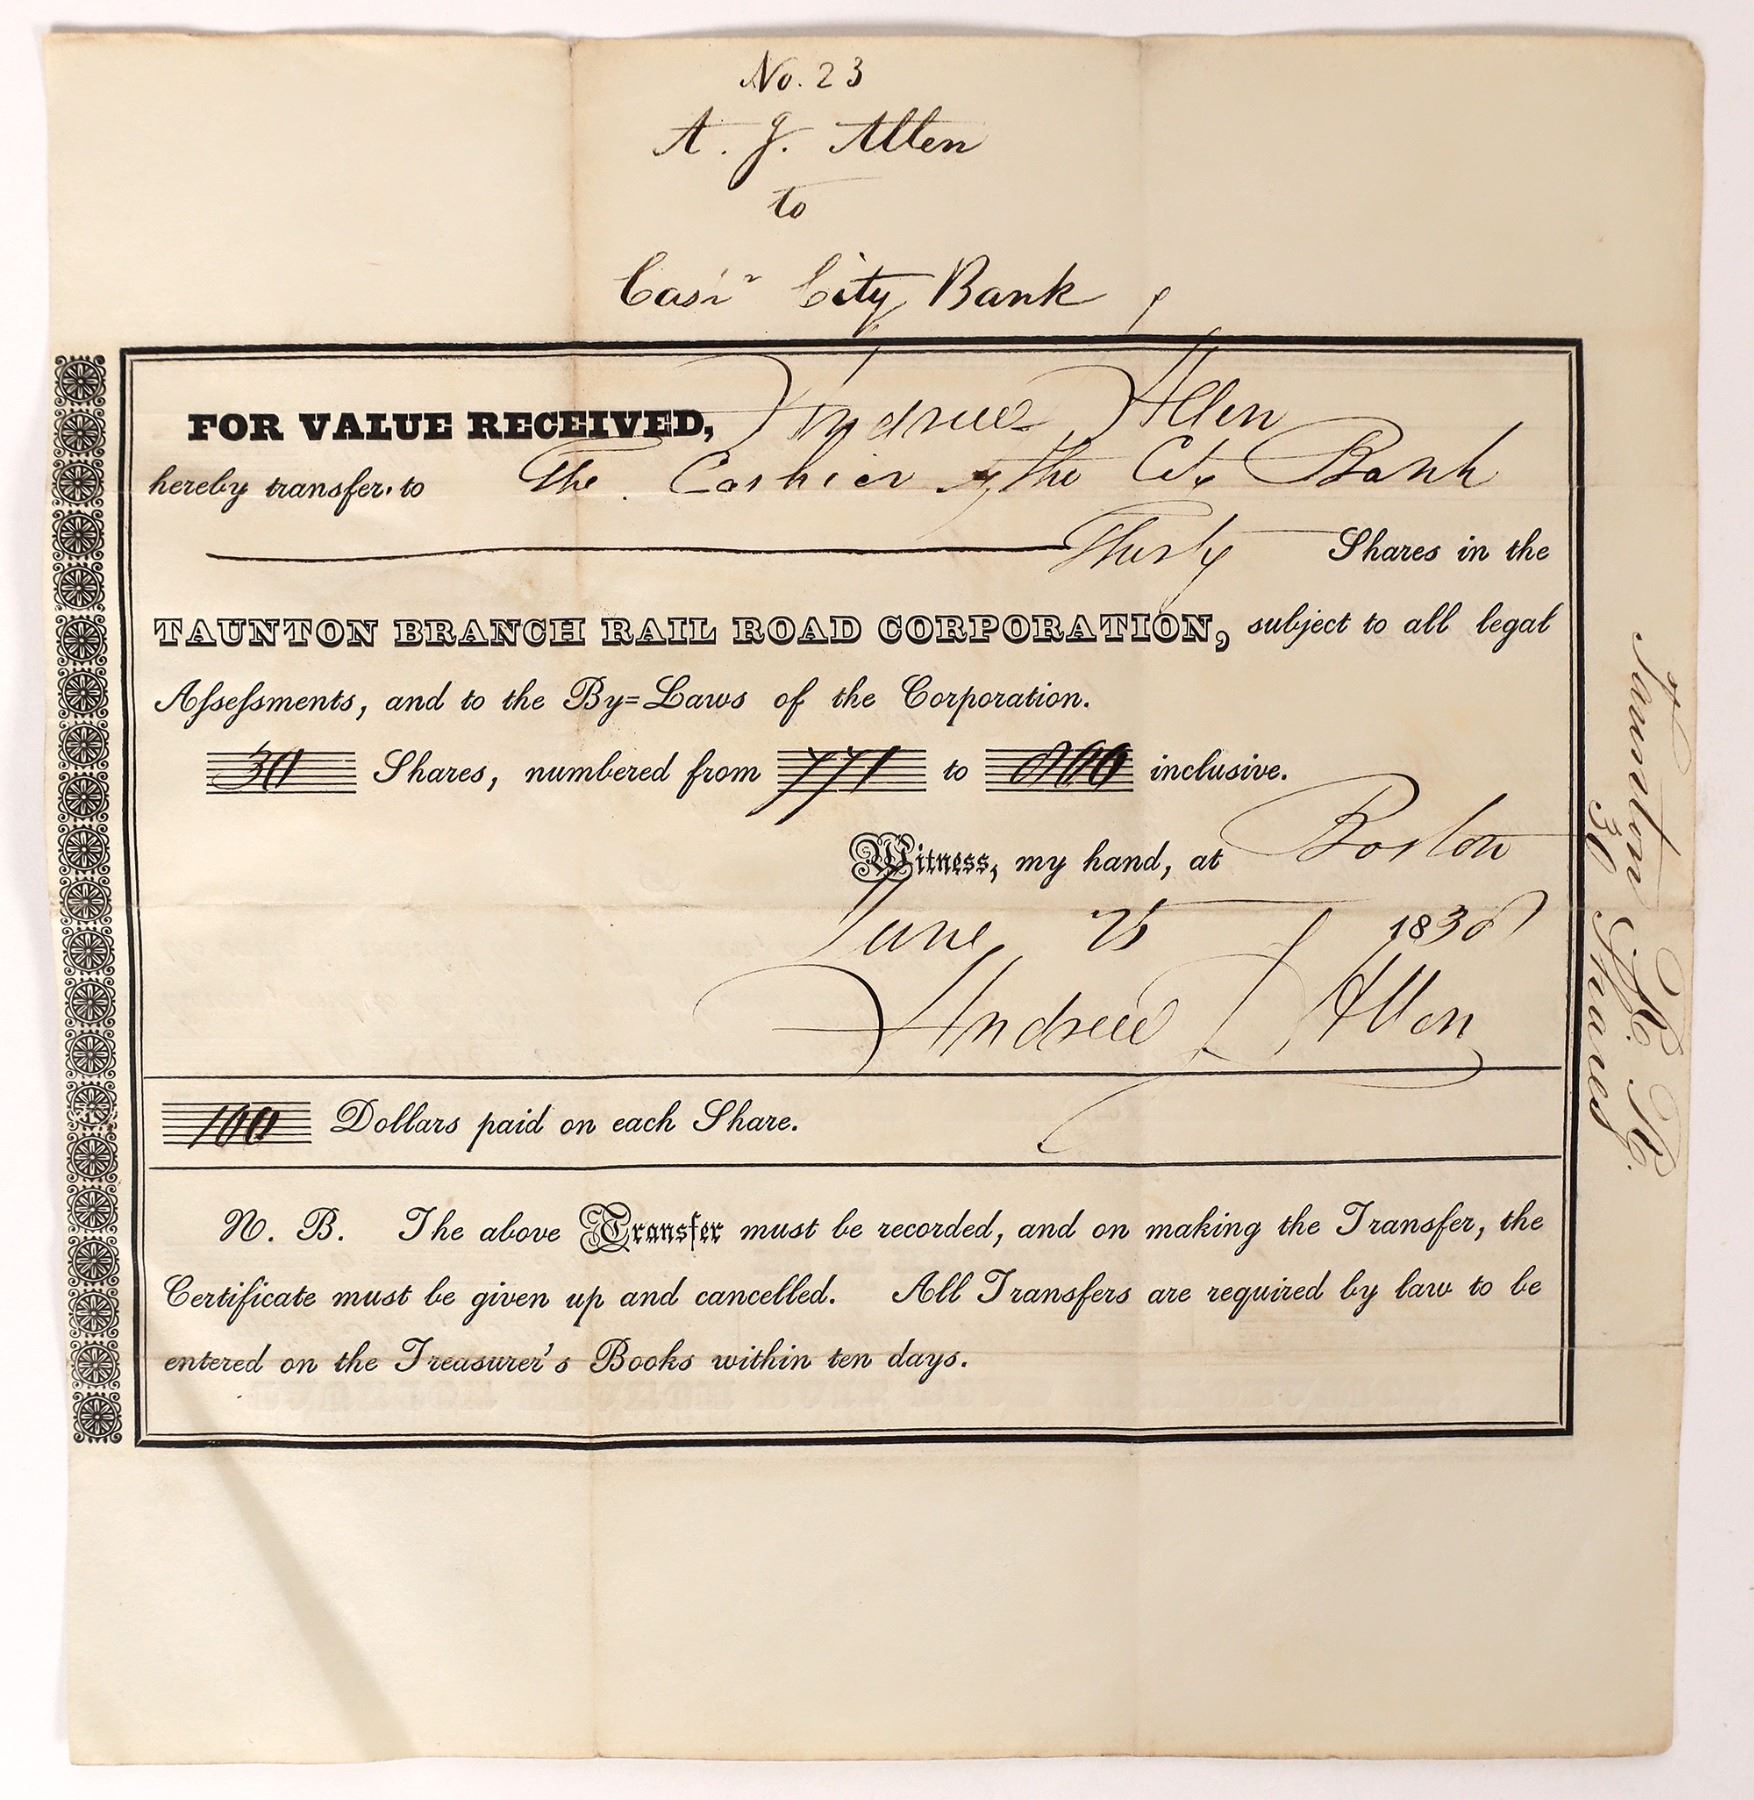 No. 23
A. J. Allen
to
Casr City Bank
FOR VALUE RECEIVED, I Andrew J Allen
hereby transfer to The Cashier of the City Bank
Thirty Shares in the
TAUNTON BRANCH RAIL ROAD CORPORATION, subject to all legal
Aſseſsments, and to the By=Laws of the Corporation.
30 Shares, numbered from 771 to 800 inclusive.
Witness, my hand, at Boston
June 25 1838
Andrew J Allen
100 Dollars paid on each Share.
N. B. The above Transfer must be recorded, and on making the Transfer, the
Certificate must be given up and cancelled. All Transfers are required by law to be
entered on the Treasurer's Books within ten days.
Taunton R. R.
30 Shares